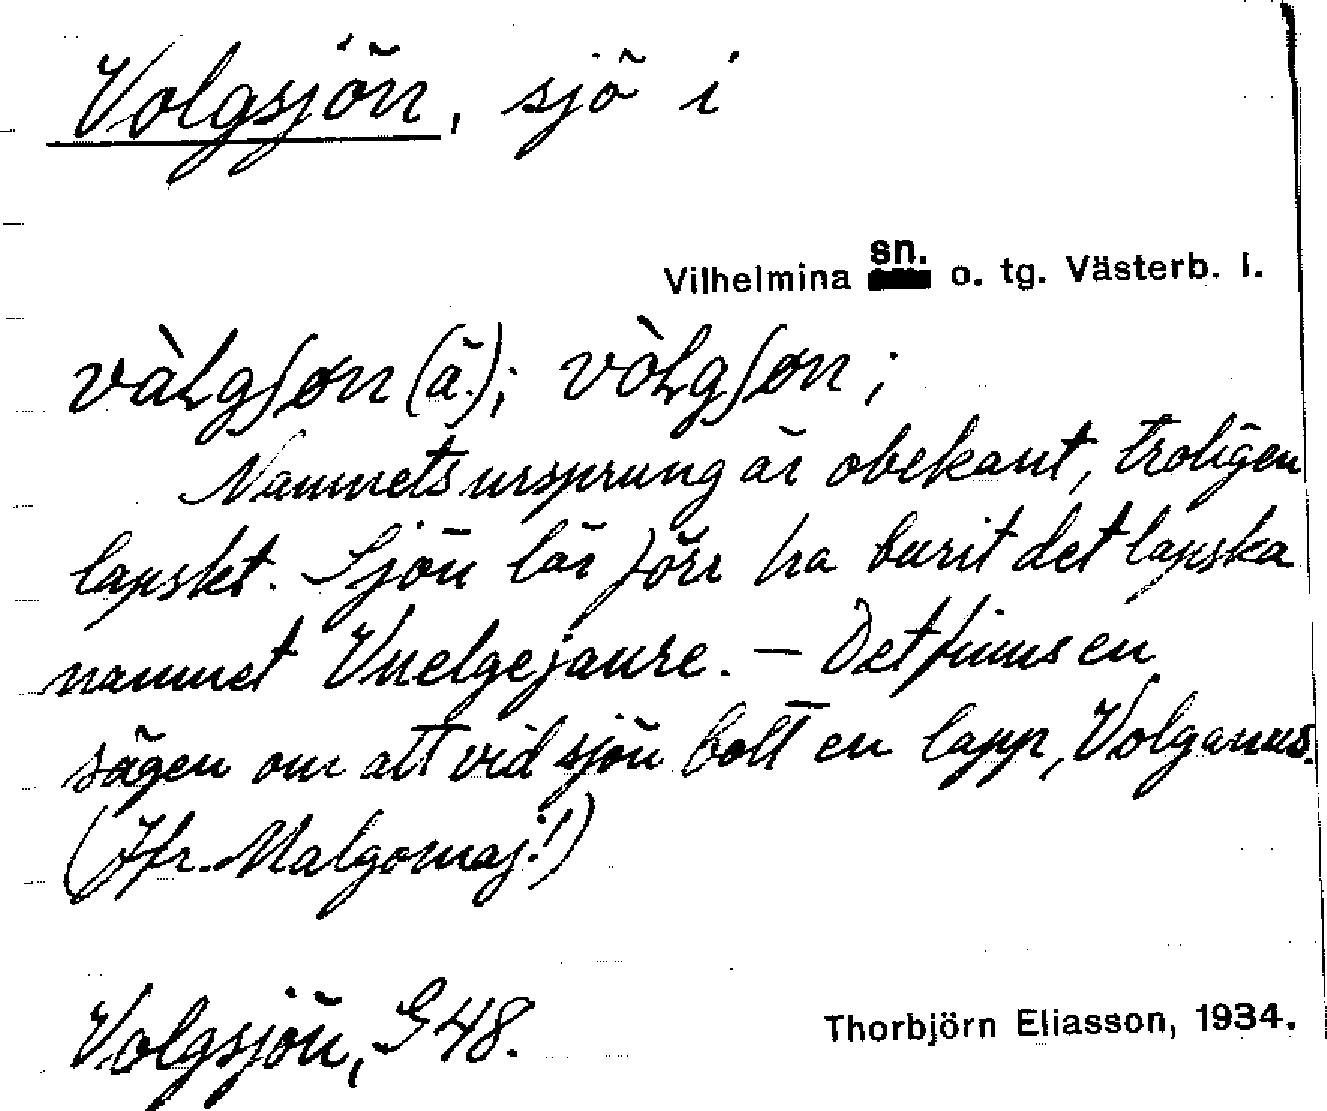 Volgsjön, sjö i
Vilhelmina sn. o. tg. Västerb. l.
vàLgʃøn (ä.); vòLgʃøn;
Namnets ursprung är obekant, troligen
lapskt. Sjön lär förr ha burit det lapska
namnet Vuelgejaure. – Det finns en
sägen om att vid sjön bott en lapp, Volganus.
(Jfr. Malgomaj!)
Volgsjön, G 48.
Thorbjörn Eliasson, 1934.